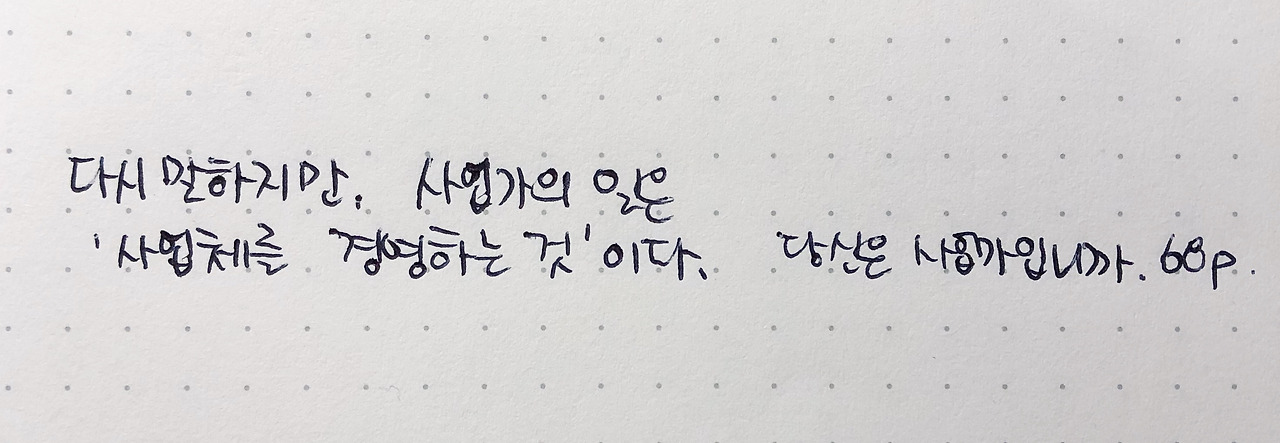 다시 말하지만, 사업가의 일은
'사업체를 경영하는 것'이다. 당신은 사업가입니까. 68p.